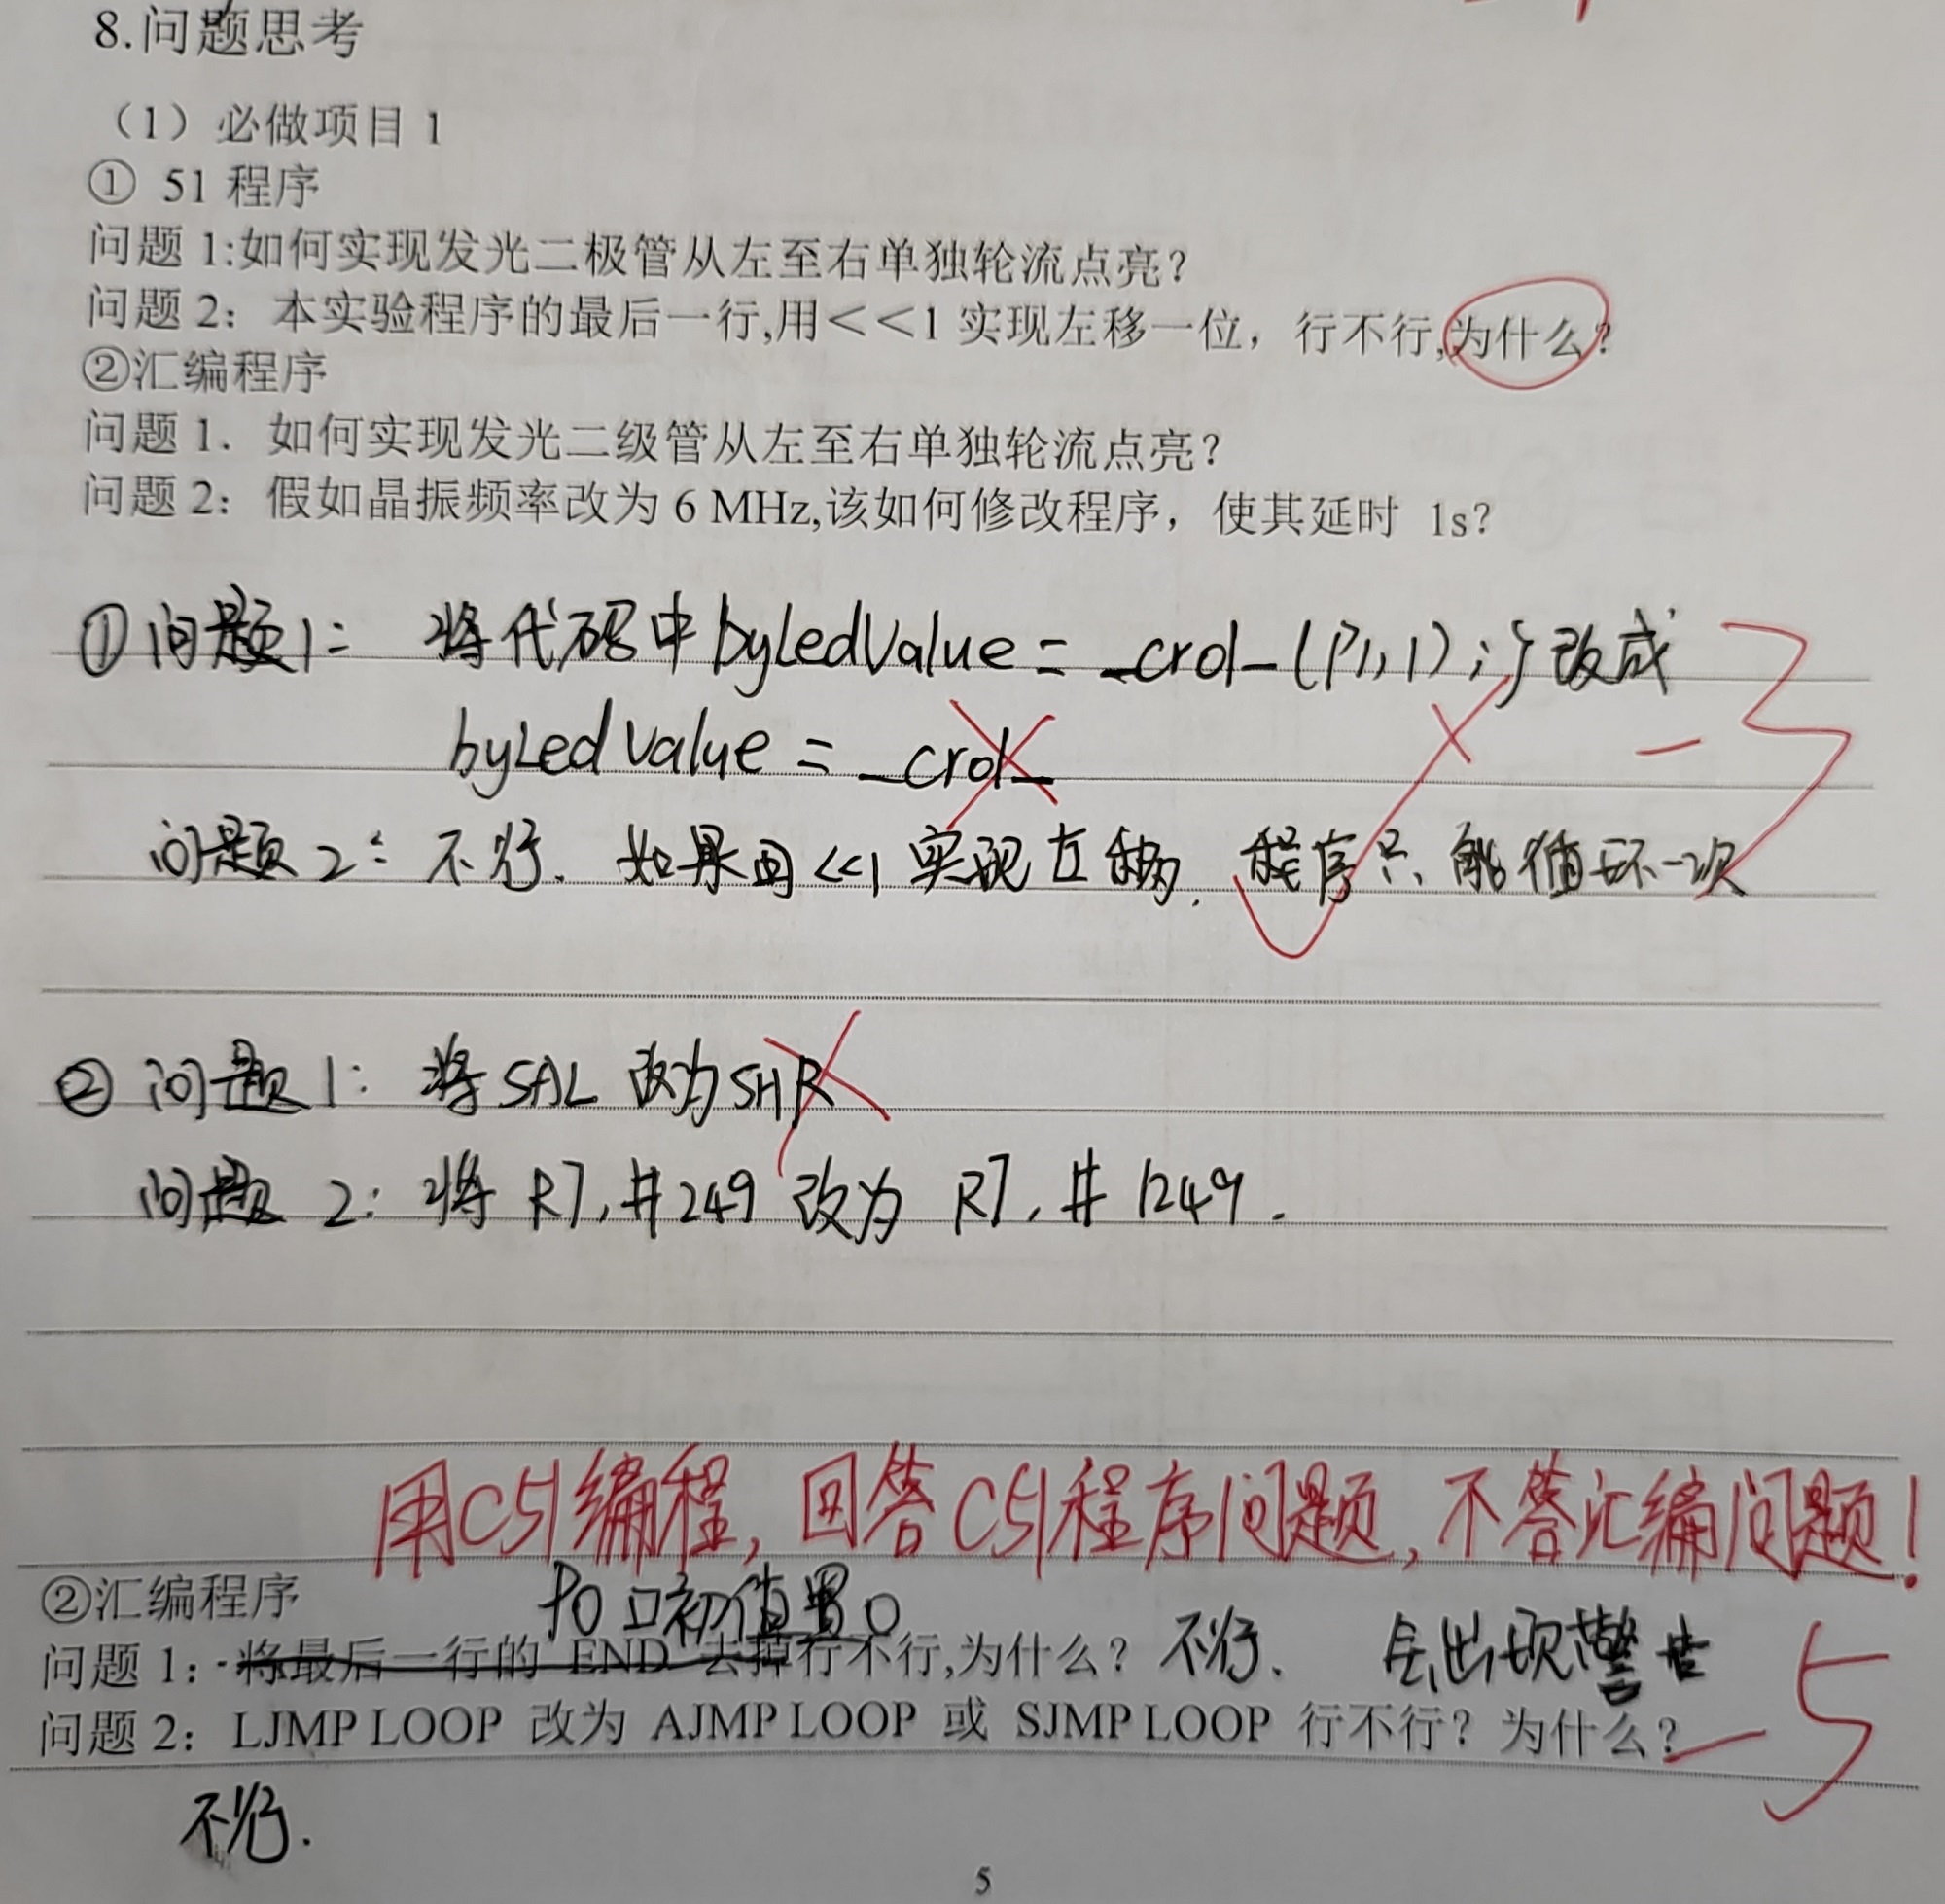 8.问题思考
（1）必做项目 1
① 51 程序
问题 1:如何实现发光二极管从左至右单独轮流点亮？
问题 2：本实验程序的最后一行,用＜＜1 实现左移一位，行不行,为什么？
②汇编程序
问题 1．如何实现发光二级管从左至右单独轮流点亮？
问题 2：假如晶振频率改为 6 MHz,该如何修改程序，使其延时 1s？
①问题1： 将代码中byLedValue = _crol_(P1,1);}改成
byLedValue = _crol_
-3
问题2： 不行. 如果用<<1 实现左移. 程序只能循环一次
②问题1： 将SAL 改为SHR
问题2: 将 R7,#249 改为 R7,#1249.
用C51编程,回答C51程序问题,不答汇编问题!
②汇编程序
P0口初值置0
问题 1：将最后一行的 END 去掉行不行,为什么？ 不行、 会出现警告
问题 2：LJMP LOOP 改为 AJMP LOOP 或 SJMP LOOP 行不行？为什么？
-5
不行.
5